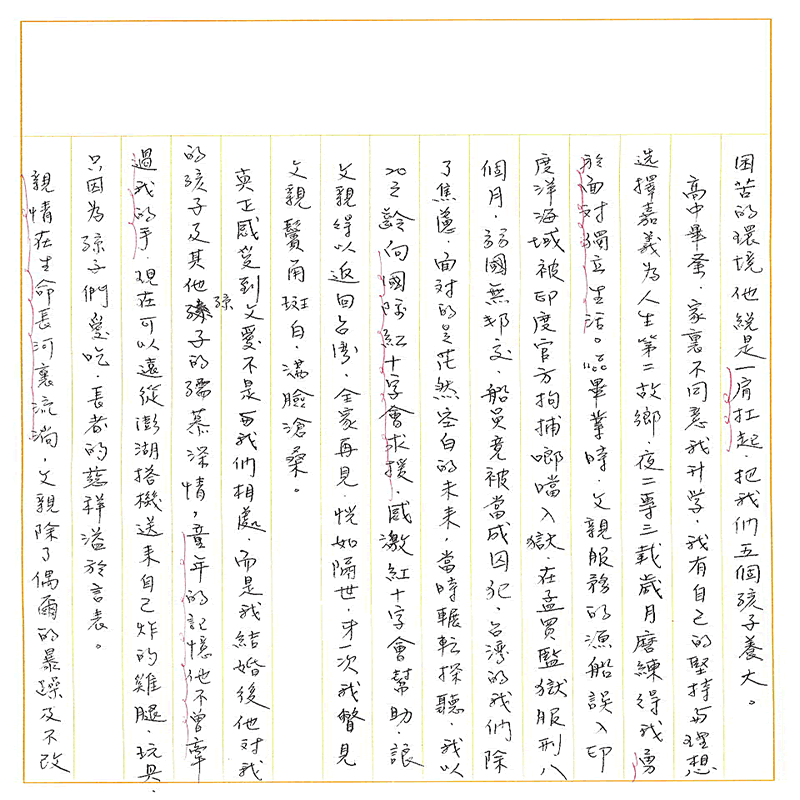 困苦的環境他總是一肩扛起.把我們五個孩子養大。
高中畢業.家裏不同意我升学.我有自己的堅持与理想
選擇嘉義為人生第二故鄉.夜二專三載歲月磨練得我勇
於面对獨立生活。畢業時.父親服務的漁船誤入印
度洋海域被印度官方拘捕啷噹入獄.在孟買監獄服刑八
個月.弱國無邦交.船員竟被當成囚犯.台灣的我們除
了焦慮.面对的是茫然空白的未来.當時輾転探聽.我以
20之齡向國际紅十字會求援.感激紅十字會幫助.讓
父親得以返回台湾.全家再見.恍如隔世.才一次我瞥見
父親鬢角斑白.滿臉滄桑。
真正感受到父爱不是与我們相處.而是我結婚後他对我
的孩子及其他孫子的孺慕深情,童年的記憶他不曾牽
過我的手.現在可以遠從澎湖搭機送来自己炸的雞腿.玩具.
只因為孫子們愛吃.長者的慈祥溢於言表。
親情在生命長河裏流淌,父親除了偶爾的暴躁及不改